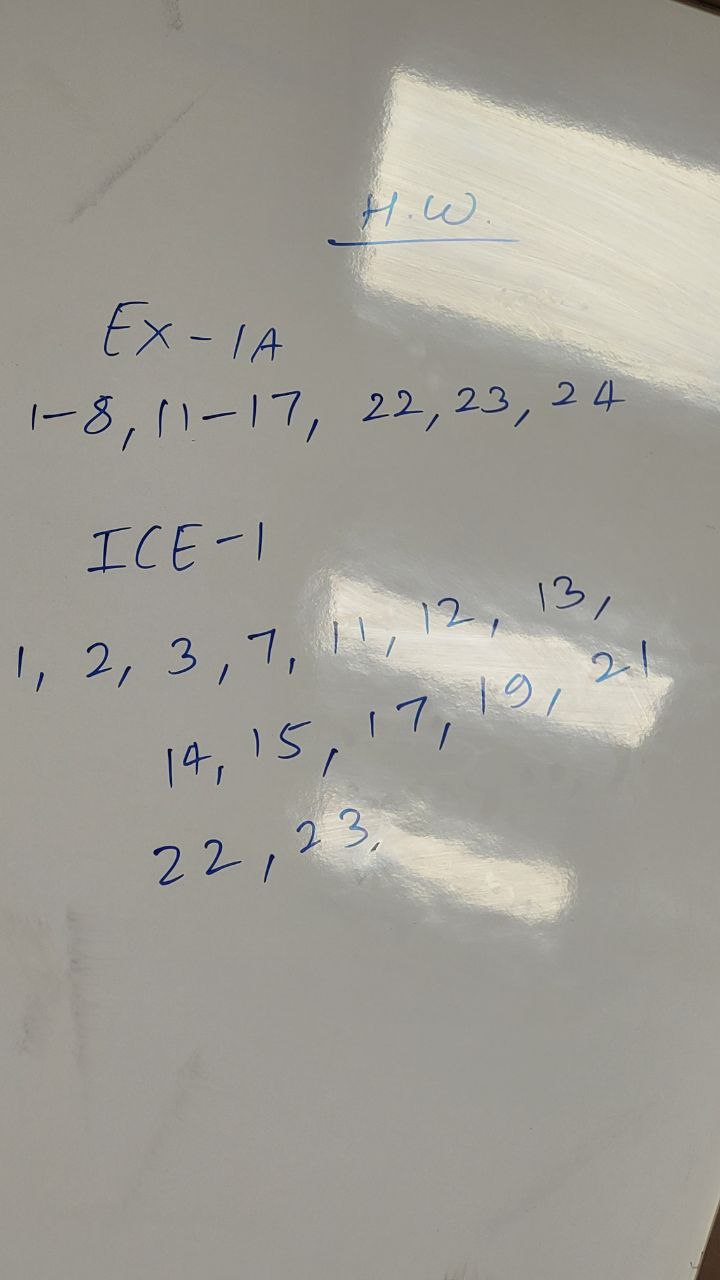 H.W.
Ex-1A
1-8, 11-17, 22, 23, 24
ICE-1
1, 2, 3, 7, 11, 12, 13,
14, 15, 17, 19, 21
22, 23.